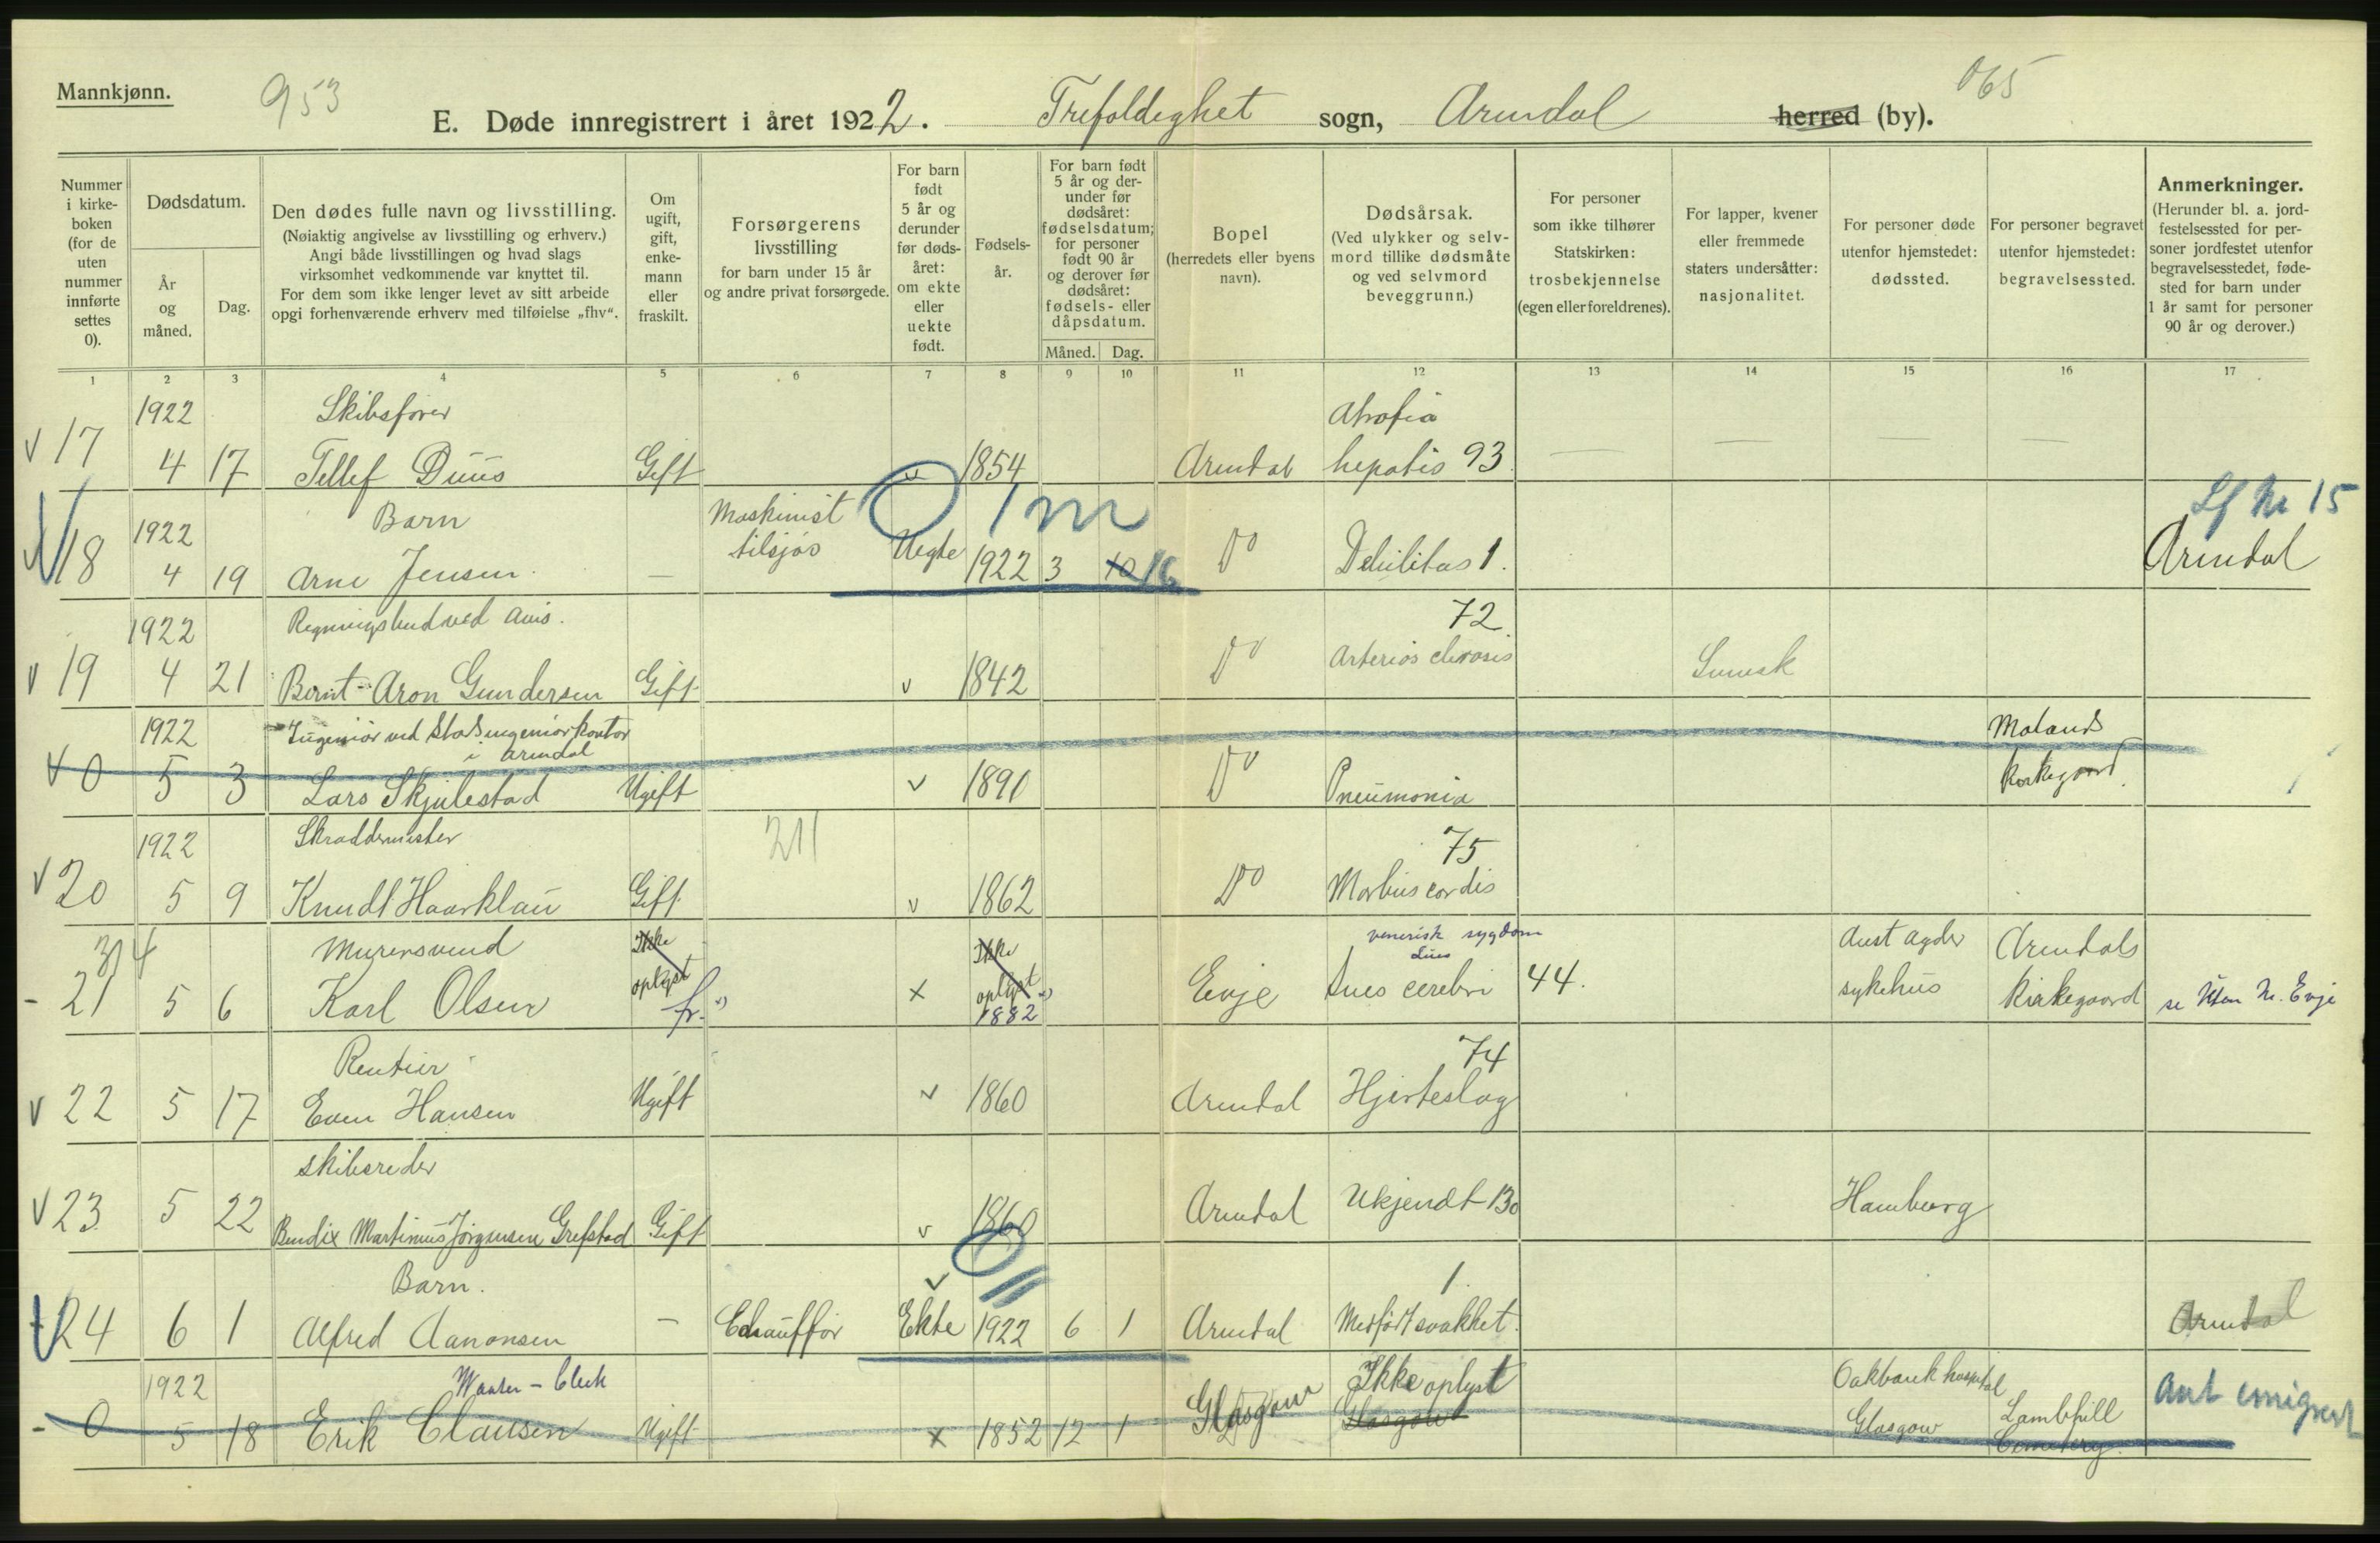 Mannkjønn.
953
E. Døde innregistrert i året 1922. Trefoldighet sogn, Arendal herred (by).
065
Nummer i kirkeboken (for de uten nummer innførte settes 0).
Dødsdatum.
År og måned.
Dag.
Den dødes fulle navn og livsstilling.
(Nøiaktig angivelse av livsstilling og erhverv.)
Angi både livsstillingen og hvad slags
virksomhet vedkommende var knyttet til.
For dem som ikke lenger levet av sitt arbeide
opgi forhenværende erhverv med tilføielse „fhv“.
Om ugift, gift, enkemann eller fraskilt.
Forsørgerens livsstilling
for barn under 15 år
og andre privat forsørgede.
For barn født 5 år og derunder før dødsåret: om ekte eller uekte født.
Fødselsår.
For barn født 5 år og derunder før dødsåret: fødselsdatum; for personer født 90 år og derover før dødsåret: fødsels- eller dåpsdatum.
Måned. Dag.
Bopel
(herredets eller byens navn).
Dødsårsak.
(Ved ulykker og selvmord tillike dødsmåte og ved selvmord beveggrunn.)
For personer som ikke tilhører Statskirken: trosbekjennelse
(egen eller foreldrenes).
For lapper, kvener eller fremmede staters undersåtter: nasjonalitet.
For personer døde utenfor hjemstedet: dødssted.
For personer begravet utenfor hjemstedet: begravelsessted.
Anmerkninger.
(Herunder bl. a. jordfestelsessted for personer jordfestet utenfor begravelsesstedet, fødested for barn under 1 år samt for personer 90 år og derover.)
1 2 3 4 5 6 7 8 9 10 11 12 13 14 15 16 17
1922 Skibsfører Atrofia
v 17 4 17 Tellef Duus Gift v 1854 Arendal hepatis 93. — — — —
1922 Barn Maskinist 1 m Lf Nr 15
18 4 19 Arne Jensen. — tilsjøs Uegte 1922 3 10 16 Do Debilitas 1. Arendal
1922 Regningsbud ved avis. 72
v 19 4 21 Bernt Aron Gundersen Gift v 1842 Do Arteriosclerosis Svensk
1922 Ingeniør ved Stadsingeniørkontor i Arendal Molands
0 5 3 Lars Skjulestad Ugift v 1890 Do Pneumonia Kirkegaard.
1922 Skraddermester 211 75
v 20 5 9 Knudt Haarklau Gift v 1862 Do Morbus cordis
314 Murersvend Ikke Ikke venerisk sygdom Lues Aust Agder Arendals
- 21 5 6 Karl Olsen oplyst fr. x) x oplyst 1882 x) Evje Lues cerebri 44. sykehus Kirkegaard se Uten Nr. Evje
Rentier 74
v 22 5 17 Even Hansen Ugift v 1860 Arendal Hjerteslag
Skibsreder
v 23 5 22 Bendix Martinius Jörgensen Grefstad Gift v 1860 Arendal Ukjendt 130 Hamburg
Barn. v 1.
24 6 1 Alfred Aanonsen — Chauffør Ekte 1922 6 1 Arendal Medfødt svakhet. Arendal
1922 Ikke oplyst Oakbank hospital
- 0 5 18 Erik Clausen Ugift x 1852 12 1 Glasgow Glasgow Glasgow Lambhill Cemetery. Ant emigrert